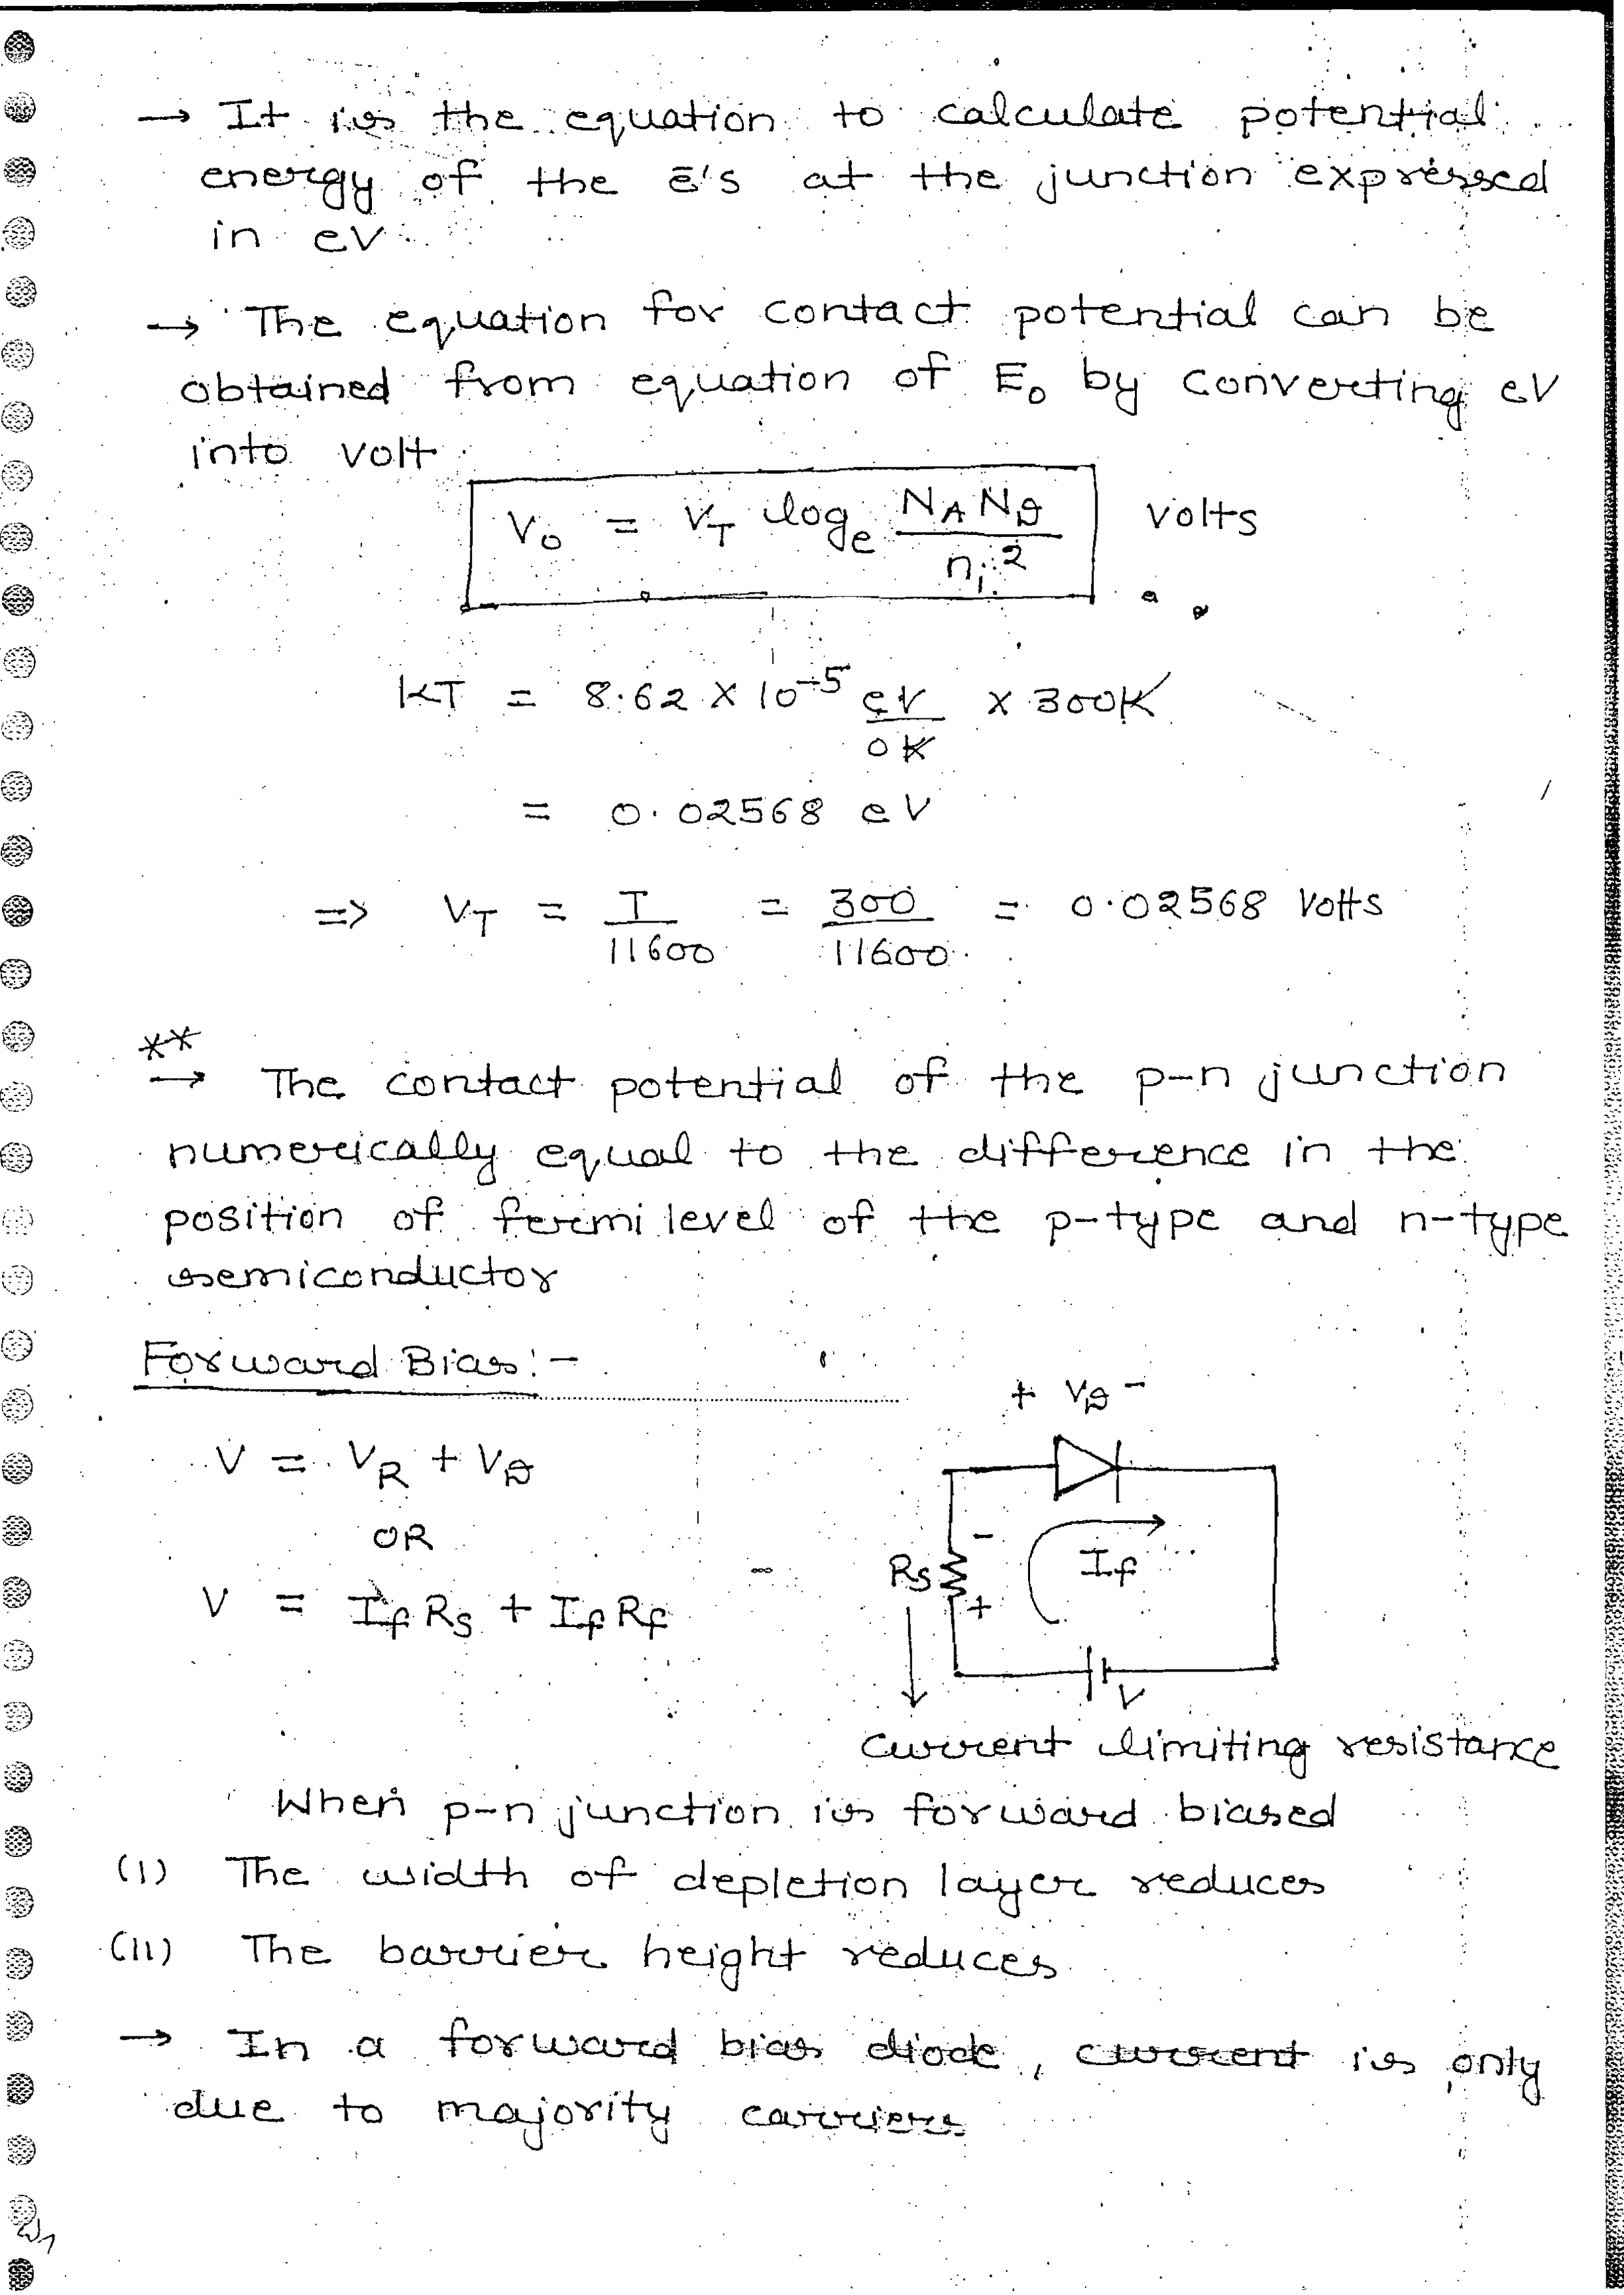 → It is the equation to calculate potential
energy of the ē's at the junction expressed
in eV
→ The equation for contact potential can be
obtained from equation of E₀ by converting eV
into volt
V₀ = V_T log_e (N_A N_D / n_i²) volts
KT = 8.62 × 10⁻⁵ eV/0K × 300K
= 0.02568 eV
=> V_T = T/11600 = 300/11600 = 0.02568 Volts
**
→ The contact potential of the p-n junction
numerically equal to the difference in the
position of fermi level of the p-type and n-type
semiconductor
Forward Bias:-
+ V_D -
V = V_R + V_D
OR
V = I_f R_S + I_f R_f
-
R_S
+
I_f
V
Current limiting resistance
When p-n junction is forward biased
(I) The width of depletion layer reduces
(II) The barrier height reduces
→ In a forward bias diode, current is only
due to majority carriers